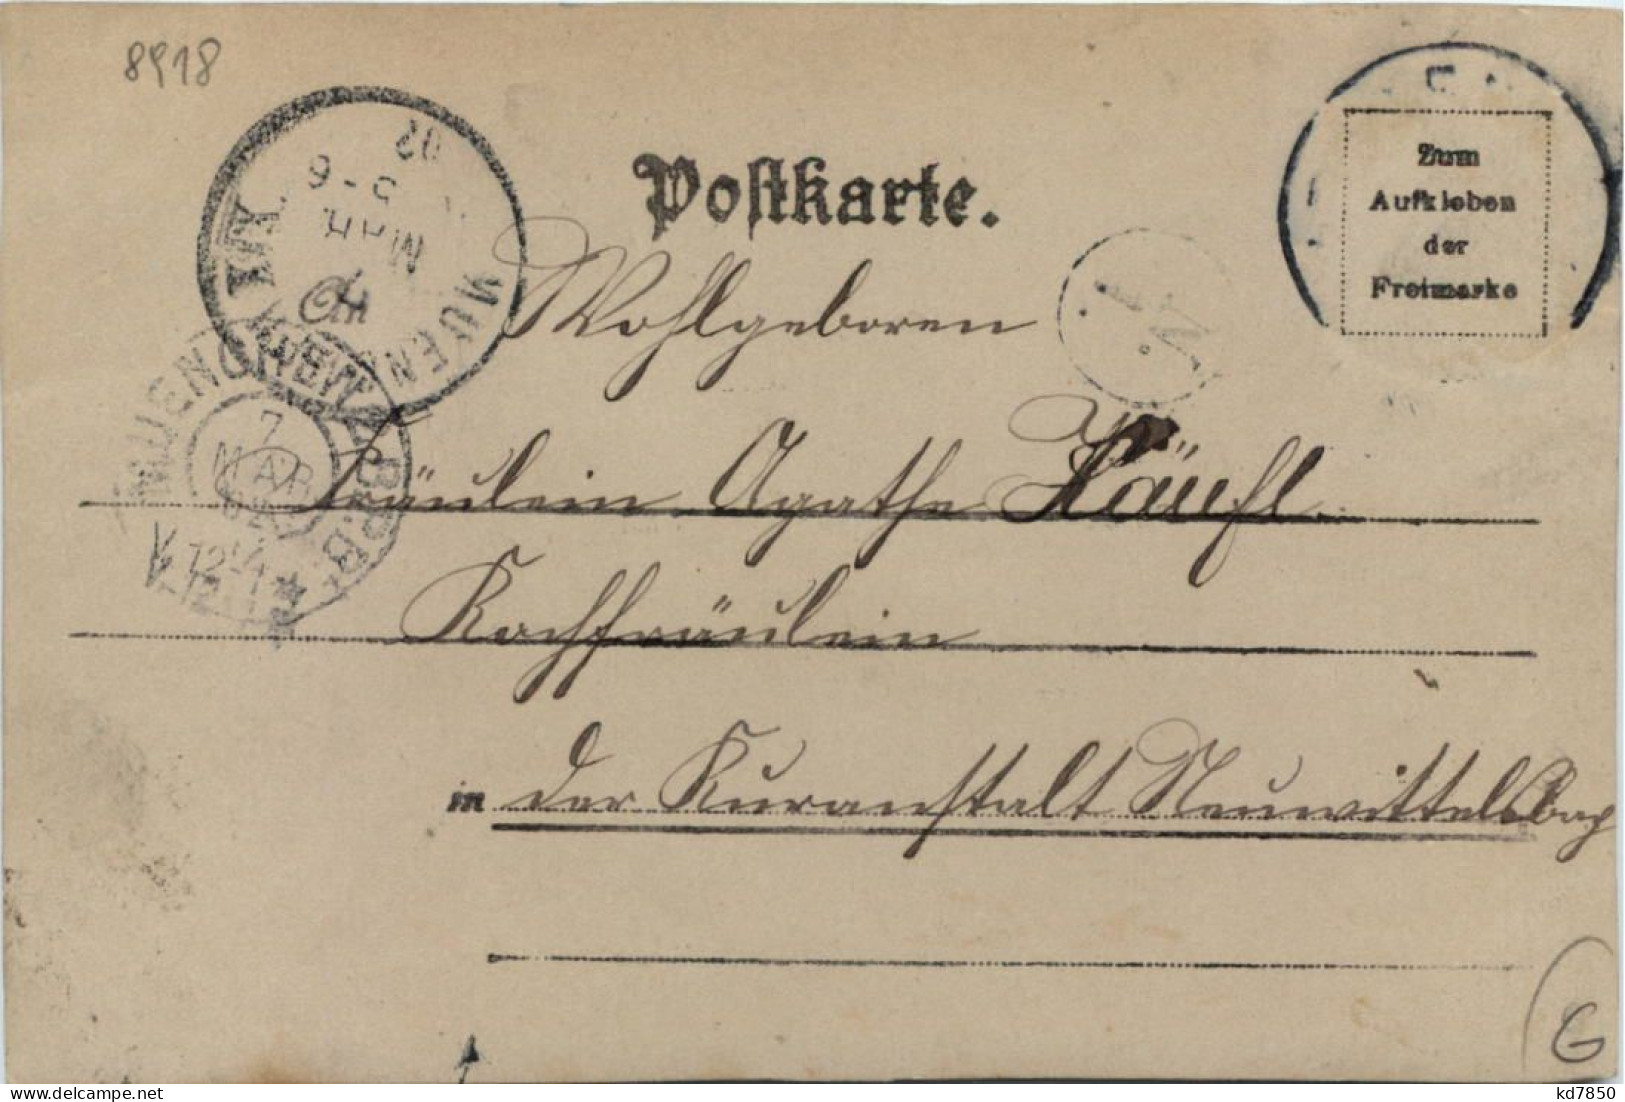 8918
Postkarte.
Zum
Aufkleben
der
Freimarke
02
5-6
MAR
7
MUENCHEN
XIX
MUENCHEN
7
MAR
02
V. 12-1
B.P.B.
Wohlgeboren
Fräulein Agathe Häufl
Kochfräulein
in der Kuranstalt Neuwittelsbach
G
www.delcampe.net
kd7850